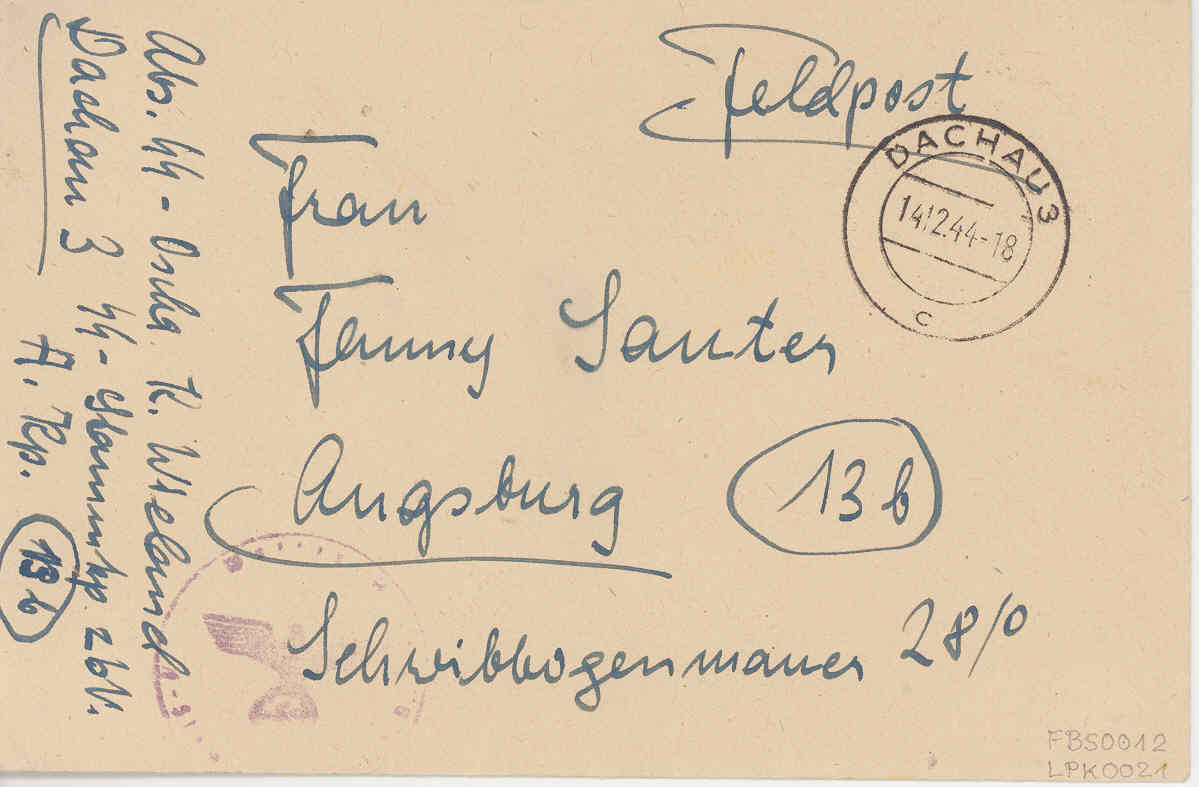 Feldpost
DACHAU 3
14.12.44-18
c
Frau
Fanny Sauter
Augsburg 13b
Schwibbogenmauer 28/0
Abs. SS-Oscha. K. Wieland
Dachau 3 SS-Stammkp. zbV.
A. Kp. 13b
FBS0012
LPK0021